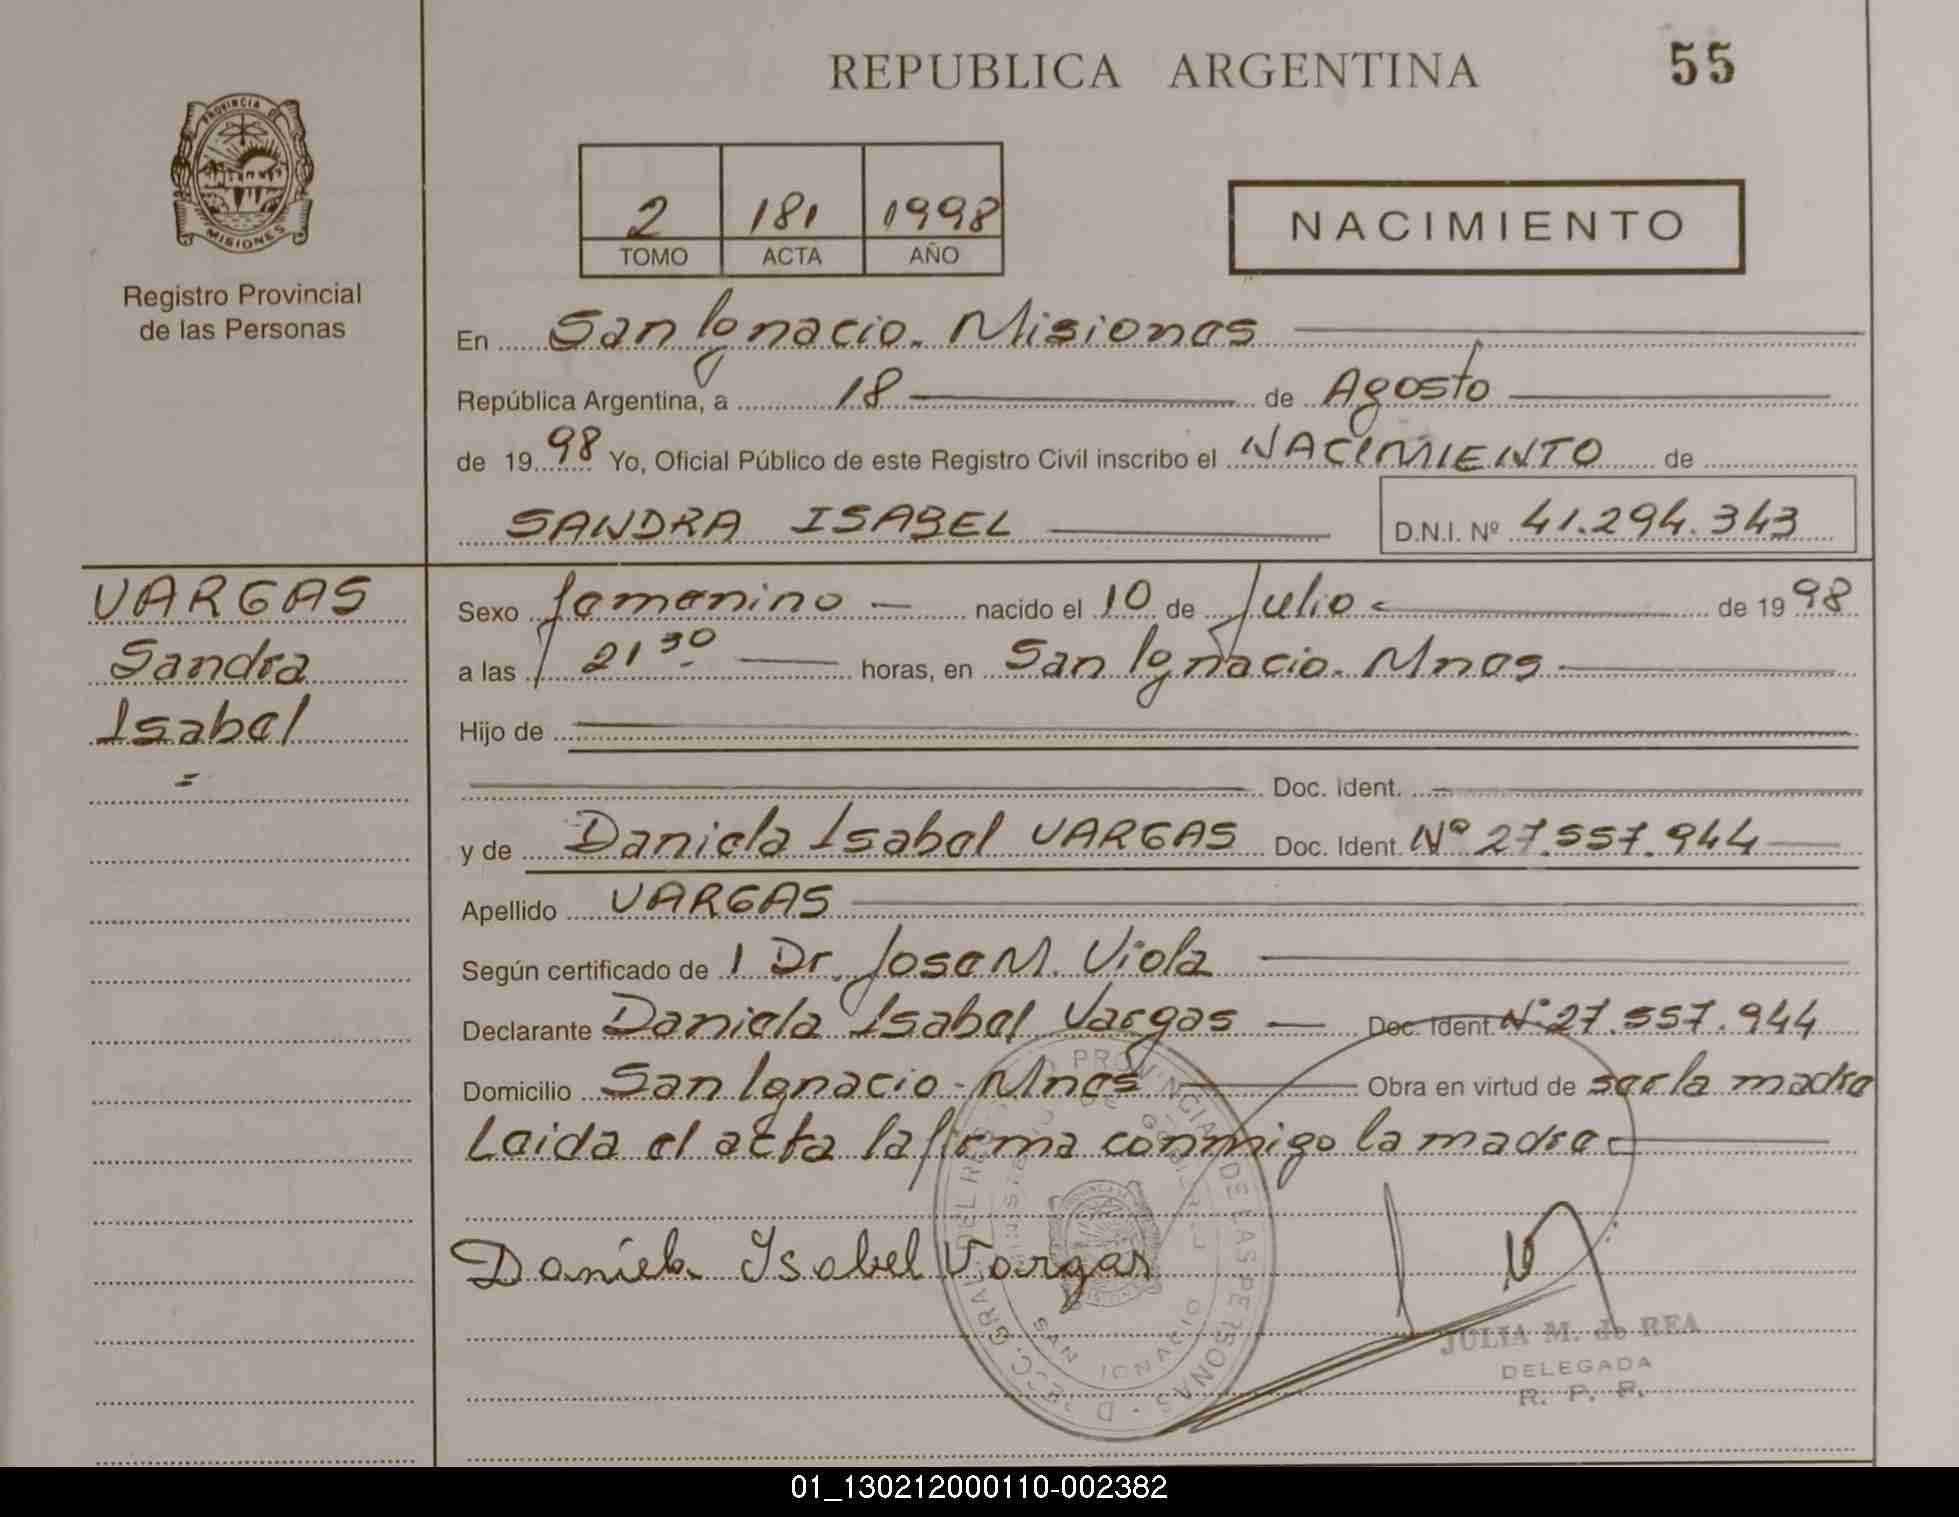 REPUBLICA ARGENTINA
55
PROVINCIA DE
MISIONES
Registro Provincial
de las Personas
2 181 1998
TOMO ACTA AÑO
NACIMIENTO
En San Ignacio. Misiones
República Argentina, a 18 de Agosto
de 1998 Yo, Oficial Público de este Registro Civil inscribo el NACIMIENTO de
SANDRA ISABEL D.N.I. Nº 41.294.343
VARGAS
Sandra
Isabel
=
Sexo femenino nacido el 10 de Julio de 1998
a las 21 30 horas, en San Ignacio. Mnes
Hijo de
Doc. Ident.
y de Daniela Isabel VARGAS Doc. Ident. Nº 27.557.944
Apellido VARGAS
Según certificado de 1 Dr. Jose M. Viola
Declarante Daniela Isabel Vargas Doc. Ident. Nº 27.557.944
Domicilio San Ignacio - Mnes Obra en virtud de ser la madre
Leida el acta la firma conmigo la madre
Daniela Isabel Vargas
PROVINCIAL DE LAS PERSONAS
SAN IGNACIO
JULIA M. de REA
DELEGADA
R. P. P.
01_130212000110-002382